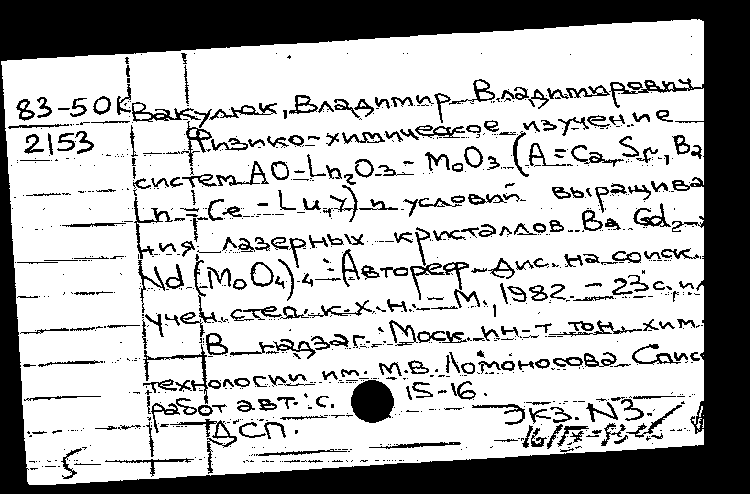 83-5 ОК Вакулюк, Владимир Владимирович
2153 Физико-химическое изучение
систем AO-Ln2O3-MoO3 (A=Ca, Sr, Ba
Ln=Ce-Lu, Y) и условий выращива
ния лазерных кристаллов Ba Gd2-x
Nd(MoO4)4 : Автореф. дис. на соиск.
учен. степ. к.х.н. - М., 1982. - 23 с., ил
В надзаг. : Моск. ин-т тон. хим.
технологии им. М.В. Ломоносова Спис
работ авт. : с. 15-16.
ДСП. Экз. N3.
5